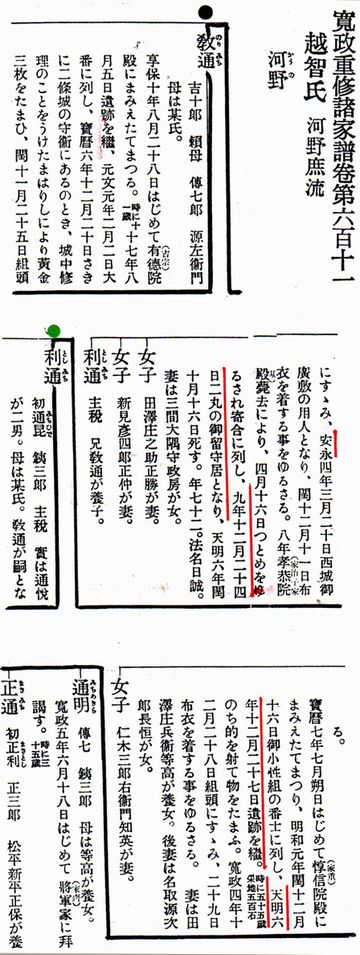 寛政重修諸家譜卷第六百十一
越智氏 河野庶流
河野
かうの
敎通
のりみち
吉十郎 頼母 傳七郎 源左衞門
母は某氏。
享保十年八月二十八日はじめて有德院
(吉宗)
殿にまみえたてまつる。時に十一歳 十七年八
月五日遺跡を繼、元文元年二月二日大
番に列し、寶曆六年十二月二十日さき
に二條城の守衞にあるのとき、城中修
理のことをうけたまはりしにより黃金
三枚をたまひ、閏十一月二十五日組頭
にすゝみ、安永四年三月二十日西城御
廣敷の用人となり、閏十二月十一日布
衣を着する事をゆるさる。八年孝恭院
(家治子家基)
殿薨去により、四月十六日つとめをゆ
るされ寄合に列し、九年十二月二十四
日二丸の御留守居となり、天明六年閏
十月十六日死す。年七十二。法名日誠。
妻は三間大隅守政房が女。
女子 田澤庄之助正勝が妻。
女子 新見彦四郎正仲が妻。
利通 主税 兄敎通が養子。
利通
としみち
初通昆 錂三郎 主税 實は通悅
が二男。母は某氏。敎通が嗣とな
る。
寶曆七年七月朔日はじめて惇信院殿に
(家重)
まみえたてまつり、明和元年閏十二月
十六日御小性組の番士に列し、天明六
年十二月二十七日遺跡を繼。時に五十五歳 采地五百石
のち的を射て物をたまふ。寛政四年十
二月二十八日組頭にすゝみ、二十九日
布衣を着する事をゆるさる。 妻は田
澤庄兵衞等高が養女。後妻は名取源次
郎長恒が女。
女子 仁木三郎右衞門知英が妻。
通明
みちあきら
傳七 錂三郎 母は等高が養女。
寛政五年六月十八日はじめて 將軍家に拜
(家齊)
謁す。時に三十五歳
正通
まさみち
初正利 正三郎 松平新平正保が養